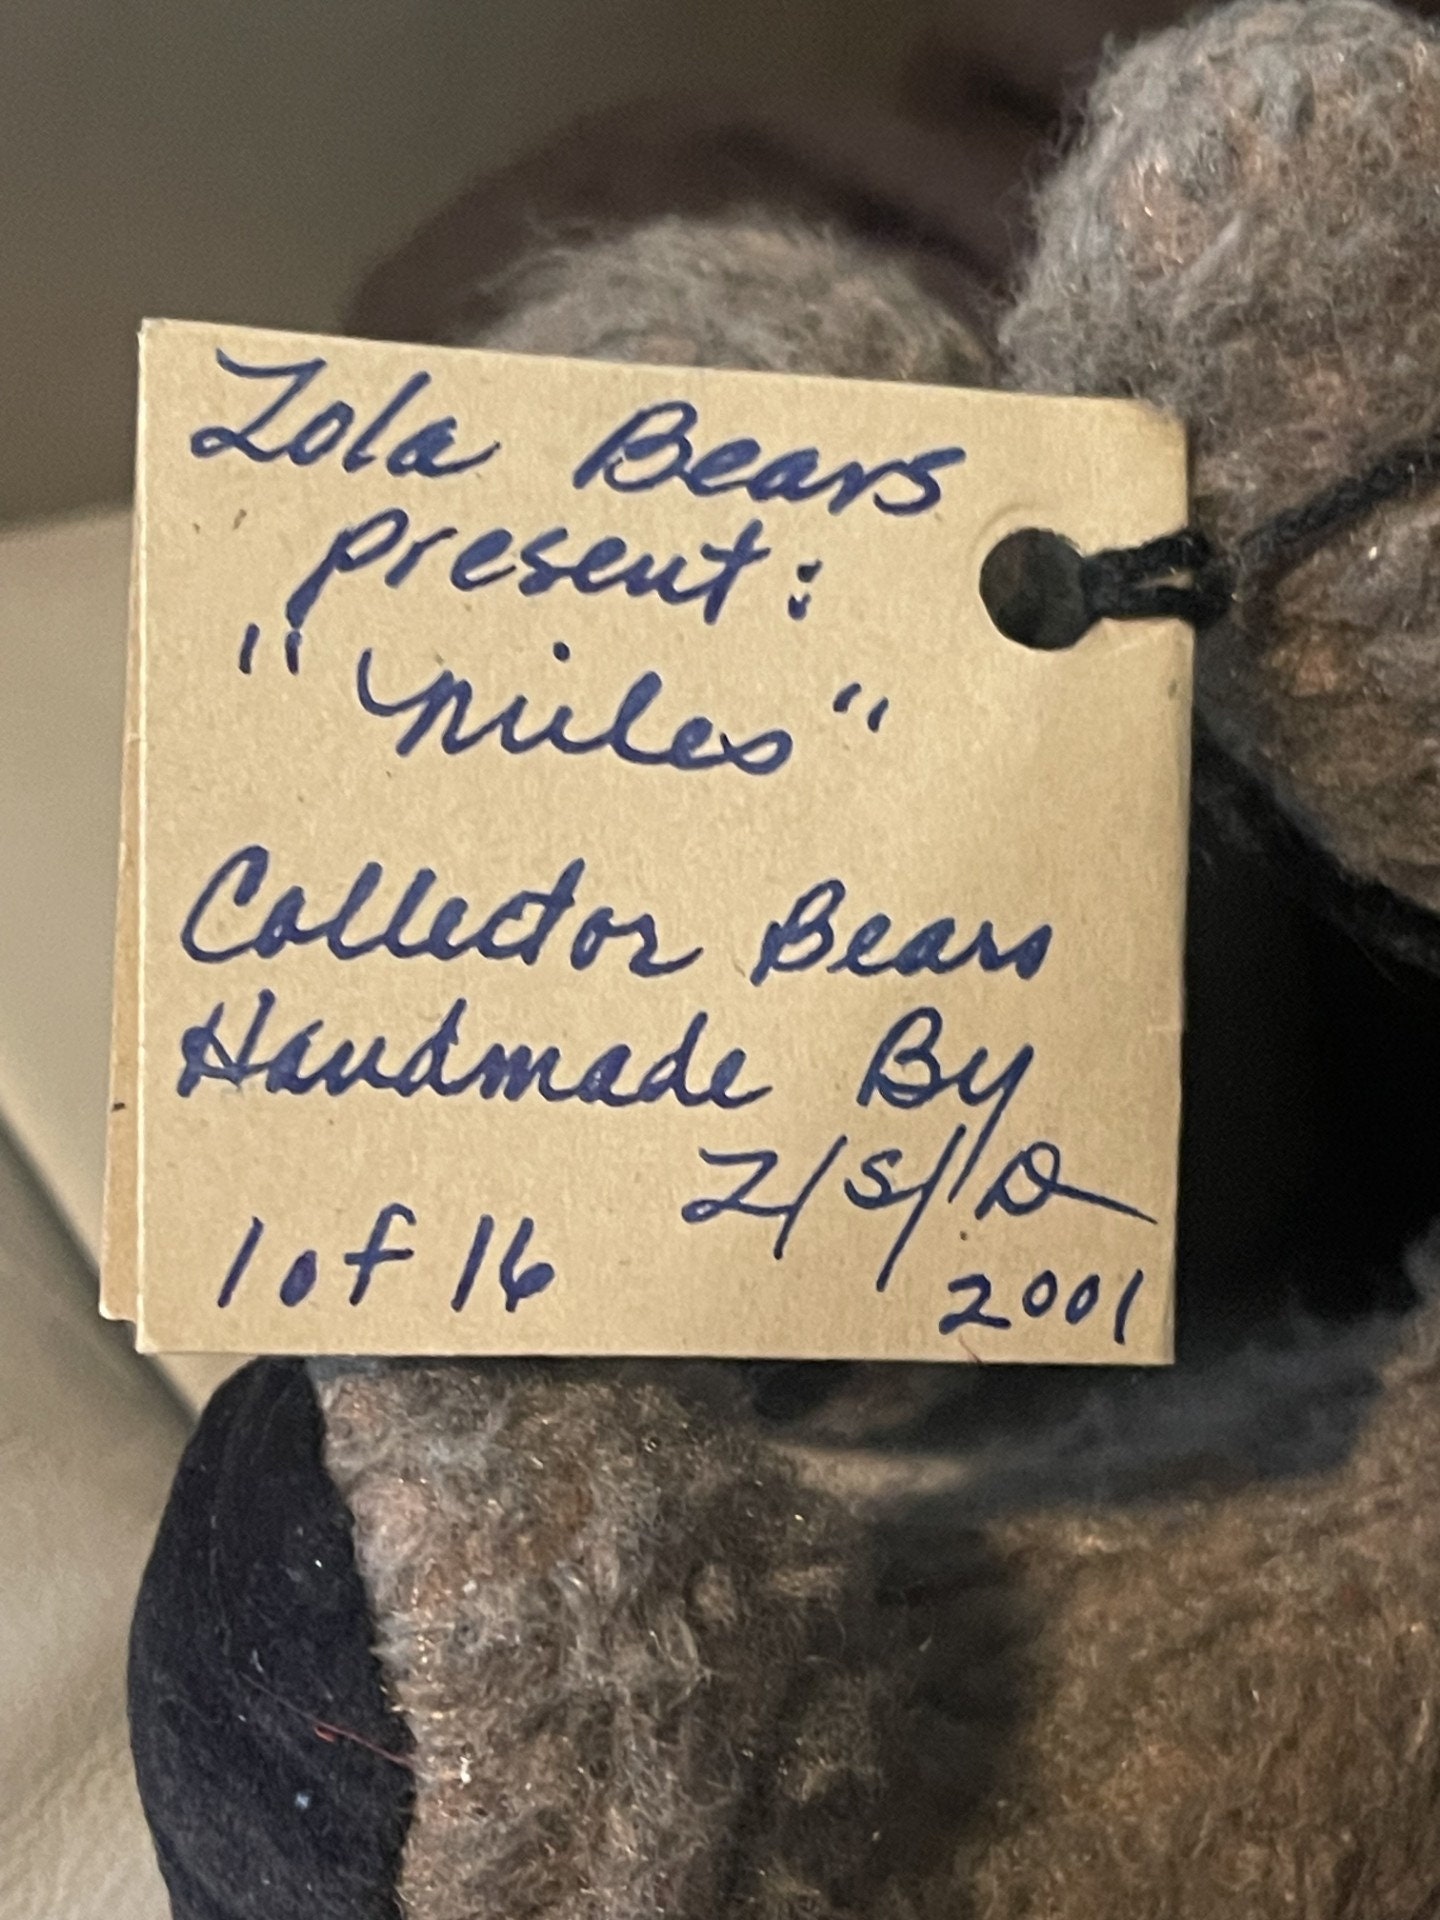 Zola Bears
present:
"Miles"
Collector Bears
Handmade By
Z/S/D
1 of 16
2001